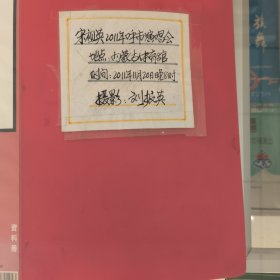 宋祖英2011年呼市演唱会
地点：内蒙古体育馆
时间：2011年11月20日晚8时
摄影：刘振英
资料册